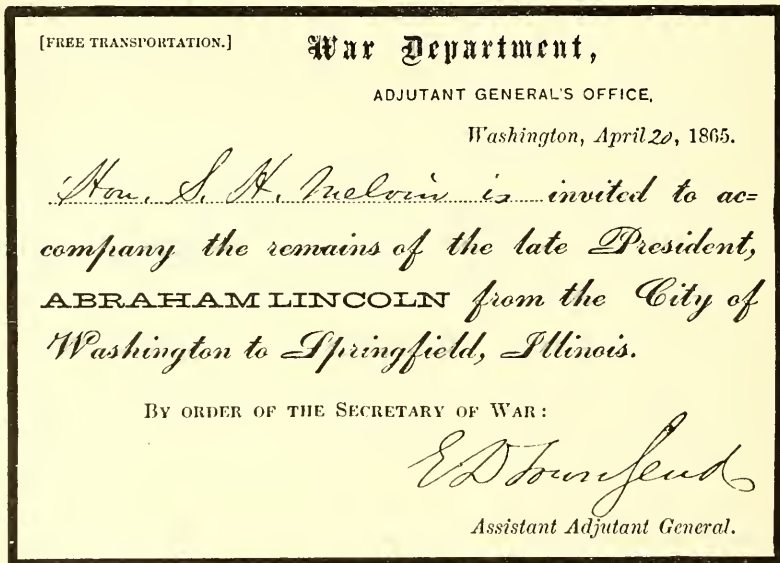 [FREE TRANSPORTATION.]
War Department,
ADJUTANT GENERAL'S OFFICE,
Washington, April 20, 1865.
Hon. S. H. Melvin is invited to ac=
company the remains of the late President,
ABRAHAM LINCOLN from the City of
Washington to Springfield, Illinois.
BY ORDER OF THE SECRETARY OF WAR:
E D Townsend
Assistant Adjutant General.